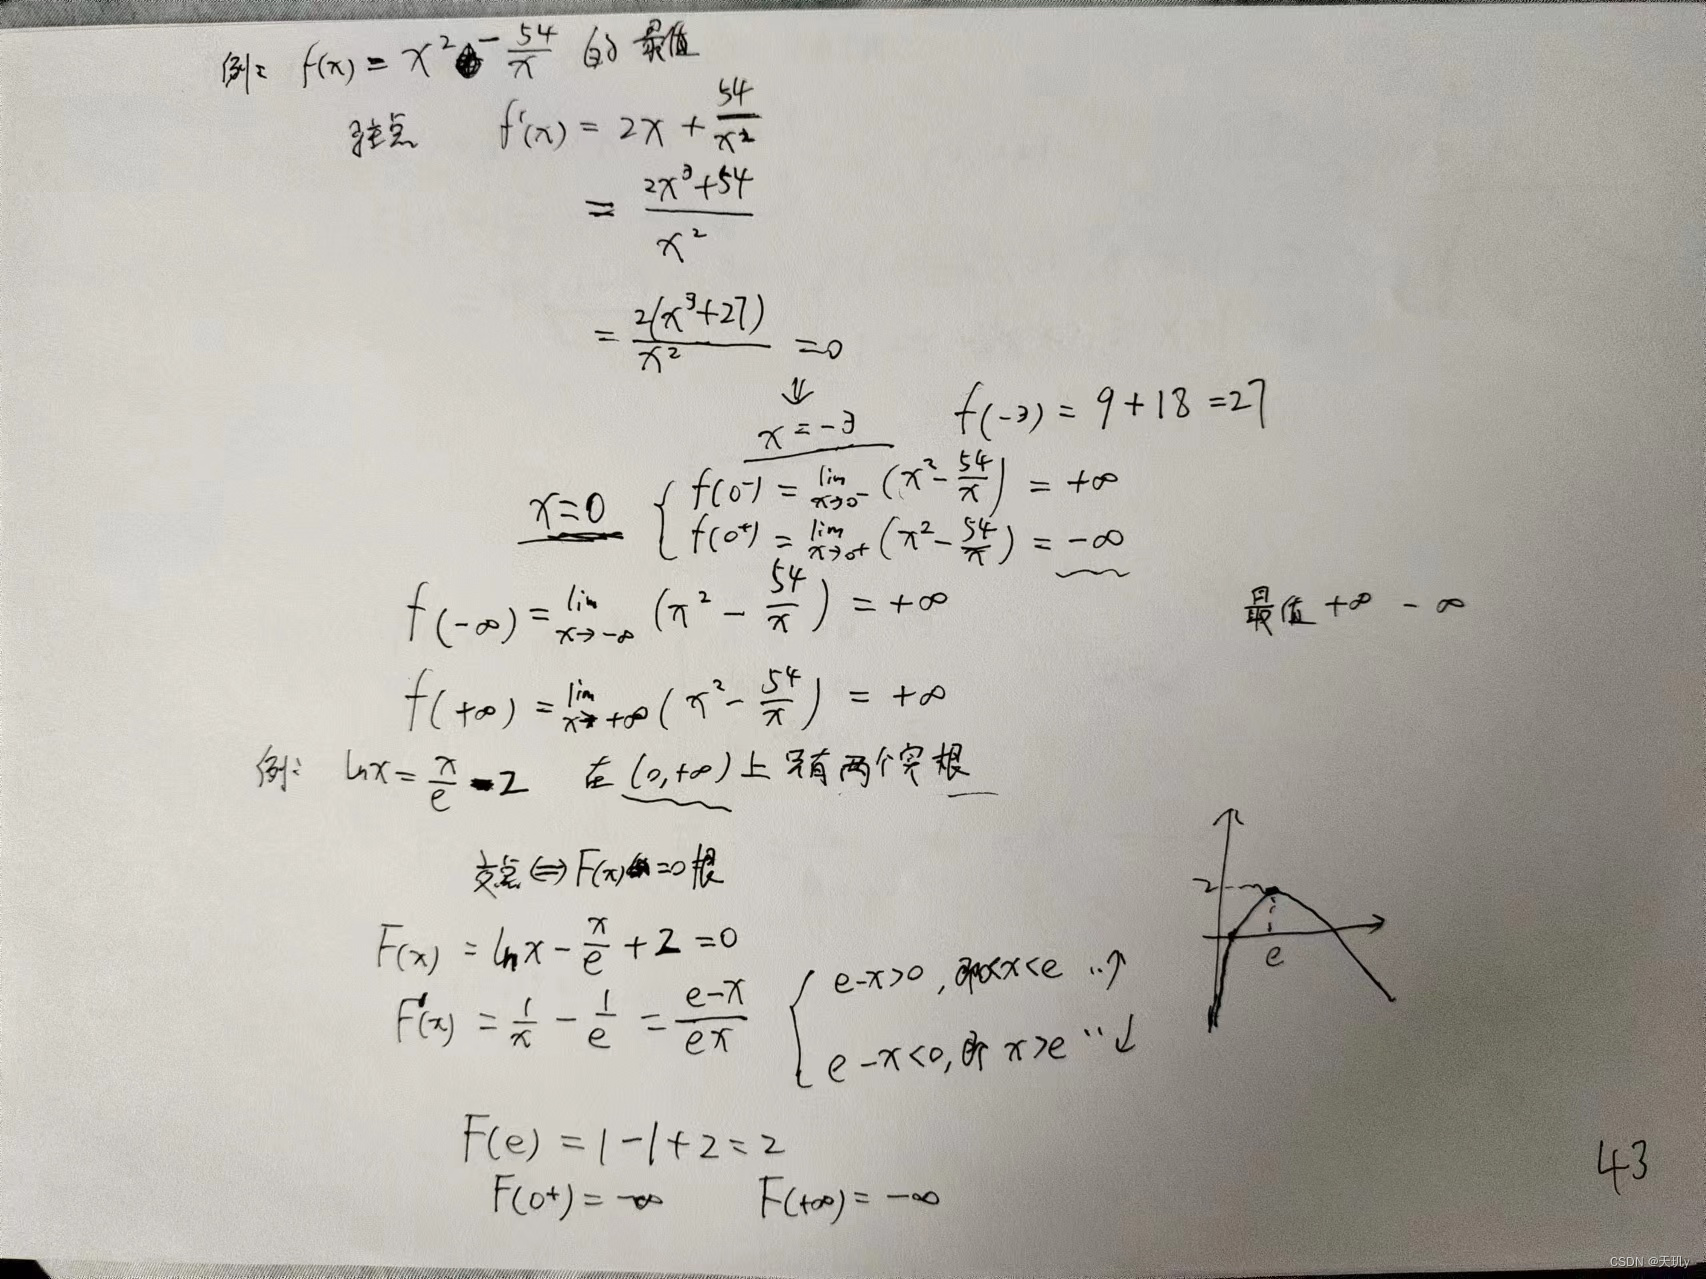 例: f(x) = x² - 54/x 的最值
驻点 f'(x) = 2x + 54/x²
= (2x³+54)/x²
= 2(x³+27)/x² =0
⇓
x = -3 f(-3) = 9+18 =27
x=0 { f(0⁻) = lim x→0⁻ (x² - 54/x) = +∞
f(0⁺) = lim x→0⁺ (x² - 54/x) = -∞
f(-∞) = lim x→-∞ (x² - 54/x) = +∞ 最值 +∞ -∞
f(+∞) = lim x→+∞ (x² - 54/x) = +∞
例: lnx = x/e - 2 在 (0,+∞) 上只有两个实根
交点 ⇔ F(x) =0 根
F(x) = lnx - x/e + 2 =0
F'(x) = 1/x - 1/e = (e-x)/(ex) { e-x>0, 即0<x<e ∴↑
e-x<0, 即 x>e ∴↓
2
e
F(e) = 1-1+2 = 2
F(0+) = -∞ F(+∞) = -∞
43
CSDN @天玑y